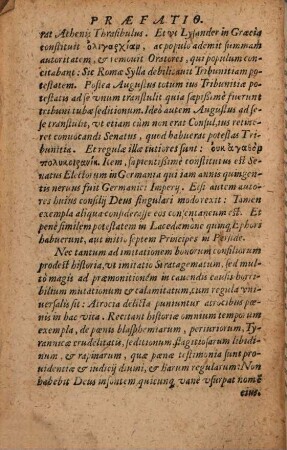 PRÆFATIO.
rat Athenis Thrasibulus. Et vt Lysander in Græcia
constituit ὀλιγαρχίαν, ac populo ademit summam
autoritatem, & remouit Oratores, qui populum con-
citabant: Sic Romæ Sylla debilitauit Tribunitiam po-
testatem. Postea Augustus totum ius Tribunitiæ po-
testatis ad se vnum transtulit quia sæpissimè fuerunt
tribuni tubæ seditionum. Ideò autem Augustus ad se-
se transtulit, vt etiam cùm non erat Consul, ius retine-
ret conuocandi Senatus, quod habuerat potestas Tri-
bunitia. Et regulæ illæ tutiores sunt: οὐκ ἀγαθὸν
πολυκοιρανίη. Item, sapientissimè constitutus est Se-
natus Electorum in Germania qui iam annis quingen-
tis neruus fuit Germanici Imperij. Etsi autem auto-
res huius consilij Deus singulari modo rexit: Tamen
exempla aliqua considerasse eos consentaneum est. Et
penè similem potestatem in Lacedæmone quinq; Epho-
ri habuerunt, aut mitiùs septem Principes in Perside.
Nec tantùm ad imitationem bonorum consiliorum
prodest historia, vt imitatio Strategematum, sed mul-
tò magis ad præmonitionem in cauendis causis horri-
bilium mutationum & calamitatum, cùm regula vni-
uersalis sit: Atrocia delicta puniuntur atrocibus pœ-
nis in hac vita. Recitant historiæ omnium temporum
exempla, de pœnis blasphemiarum, periuriorum, Ty-
rannicæ crudelitatis, seditionum, flagitiosarum libidi-
num, & rapinarum, quæ pœnæ testimonia sunt proui-
dentiæ & iudicij diuini, & harum regularum: Non
habebit Deus insontem quicunq; vanè vsurpat nomē
eius.